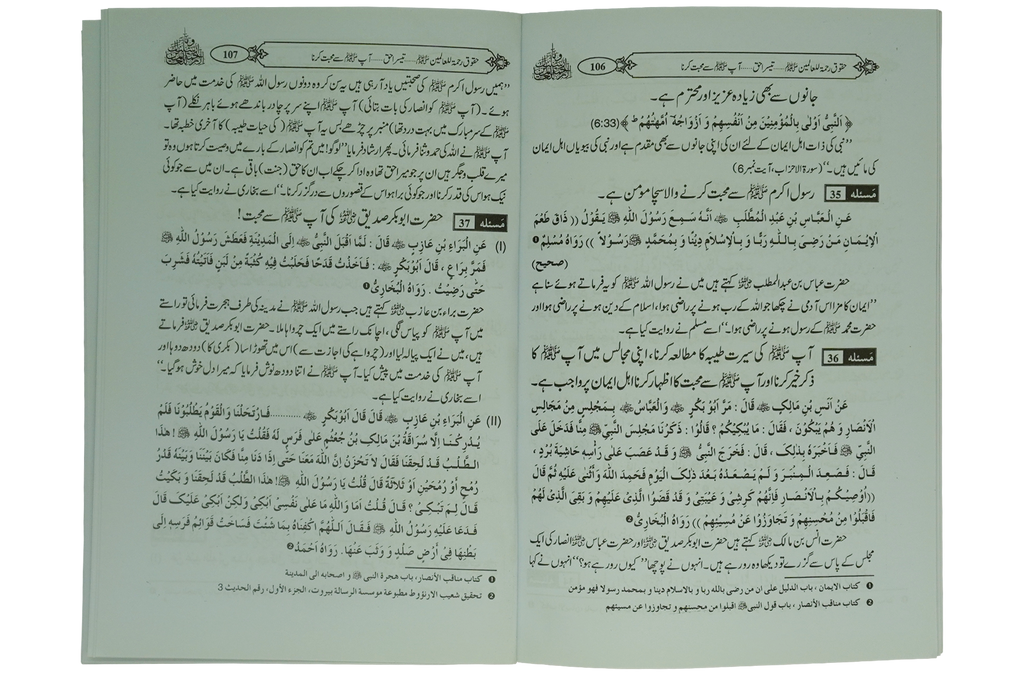 106
حقوق رحمۃ للعالمین ﷺ......تیسرا حق......آپ ﷺ سے محبت کرنا
جانوں سے بھی زیادہ عزیز اور محترم ہے۔
﴿ اَلنَّبِیُّ اَوْلٰی بِالْمُؤْمِنِیْنَ مِنْ اَنْفُسِهِمْ وَ اَزْوَاجُهٗٓ اُمَّهٰتُهُمْ ط ﴾ (6:33)
’’نبی کی ذات اہل ایمان کے لئے ان کی اپنی جانوں سے بھی مقدم ہے اور نبی کی بیویاں اہل ایمان
کی مائیں ہیں۔‘‘ (سورۃ الاحزاب، آیت نمبر 6)
مَسئلہ 35 رسول اکرم ﷺ سے محبت کرنے والا سچا مؤمن ہے۔
عَنِ الْعَبَّاسِ بْنِ عَبْدِ الْمُطَّلِبِ ﷺ اَنَّهُ سَمِعَ رَسُوْلَ اللّٰهِ ﷺ يَقُوْلُ (( ذَاقَ طَعْمَ
الْإِيْمَانِ مَنْ رَضِيَ بِاللّٰهِ رَبًّا وَ بِالْإِسْلَامِ دِيْنًا وَ بِمُحَمَّدٍ ﷺ رَسُوْلًا )) رَوَاهُ مُسْلِمٌ ❶
(صحیح)
حضرت عباس بن عبدالمطلب کہتے ہیں میں نے رسول اللہ ﷺ کو یہ فرماتے ہوئے سنا ہے
’’ایمان کا مزا اس آدمی نے چکھا جو اللہ کے رب ہونے پر راضی ہوا، اسلام کے دین ہونے پر راضی ہوا اور
حضرت محمد ﷺ کے رسول ہونے پر راضی ہوا۔‘‘ اسے مسلم نے روایت کیا ہے۔
مَسئلہ 36 آپ ﷺ کی سیرت طیبہ کا مطالعہ کرنا، اپنی مجالس میں آپ ﷺ کا
ذکر خیر کرنا اور آپ ﷺ سے محبت کا اظہار کرنا اہل ایمان پر واجب ہے۔
عَنْ اَنَسِ بْنِ مَالِكٍ ﷺ قَالَ : مَرَّ اَبُوْ بَكْرٍ ﷺ وَالْعَبَّاسُ ﷺ بِمَجْلِسٍ مِنْ مَجَالِسِ
الْاَنْصَارِ وَ هُمْ يَبْكُوْنَ ، فَقَالَ : مَا يُبْكِيْكُمْ ؟ قَالُوْا : ذَكَرْنَا مَجْلِسَ النَّبِيِّ ﷺ مِنَّا فَدَخَلَ عَلَى
النَّبِيِّ ﷺ فَاَخْبَرَهُ بِذٰلِكَ ، قَالَ : فَخَرَجَ النَّبِيُّ ﷺ وَ قَدْ عَصَبَ عَلٰى رَأْسِهٖ حَاشِيَةَ بُرْدٍ ،
قَالَ : فَصَعِدَ الْمِنْبَرَ وَ لَمْ يَصْعَدْهُ بَعْدَ ذٰلِكَ الْيَوْمِ فَحَمِدَ اللّٰهَ وَاَثْنٰى عَلَيْهِ ثُمَّ قَالَ
(( اُوْصِيْكُمْ بِالْاَنْصَارِ فَاِنَّهُمْ كَرِشِيْ وَ عَيْبَتِيْ وَ قَدْ قَضَوُا الَّذِيْ عَلَيْهِمْ وَ بَقِيَ الَّذِيْ لَهُمْ
فَاقْبَلُوْا مِنْ مُحْسِنِهِمْ وَ تَجَاوَزُوْا عَنْ مُسِيْئِهِمْ )) رَوَاهُ الْبُخَارِيُّ ❷
حضرت انس بن مالک کہتے ہیں حضرت ابوبکر صدیق اور حضرت عباس انصار کی ایک
مجلس کے پاس سے گزرے تو دیکھا وہ رو رہے ہیں۔ انہوں نے پوچھا ’’کیوں رو رہے ہو؟‘‘ انہوں نے کہا
❶ کتاب الایمان ، باب الدلیل علی ان من رضی باللہ ربا و بالاسلام دینا و بمحمد رسولا فهو مؤمن
❷ کتاب مناقب الأنصار ، باب قول النبی ﷺ اقبلوا من محسنهم و تجاوزوا عن مسیئهم
107
حقوق رحمۃ للعالمین ﷺ......تیسرا حق......آپ ﷺ سے محبت کرنا
’’ہمیں رسول اکرم ﷺ کی صحبتیں یاد آ رہی ہیں یہ سن کر وہ دونوں رسول اللہ ﷺ کی خدمت میں حاضر
ہوئے۔ (آپ ﷺ کو انصار کی بات بتائی) آپ ﷺ اپنے سر پر چادر باندھے ہوئے باہر نکلے (آپ
ﷺ کے سر مبارک میں بہت درد تھا) منبر پر چڑھے بس یہ آپ ﷺ (کی حیات طیبہ) کا آخری خطبہ تھا۔
آپ ﷺ نے اللہ کی حمد و ثنا فرمائی۔ پھر ارشاد فرمایا ’’لوگو! میں تم کو انصار کے بارے میں وصیت کرتا ہوں وہ تو
میرے قلب و جگر ہیں ان پر جو میرا حق تھا وہ ادا کر چکے اب ان کا حق (جنت) باقی ہے۔ ان میں سے جو کوئی
نیک ہو اس کی قدر کرنا اور جو کوئی برا ہو اس کے قصوروں سے درگزر کرنا۔‘‘ اسے بخاری نے روایت کیا ہے۔
مَسئلہ 37 حضرت ابوبکر صدیق کی آپ ﷺ سے محبت!
(I) عَنِ الْبَرَاءِ بْنِ عَازِبٍ ﷺ قَالَ : لَمَّا اَقْبَلَ النَّبِيُّ ﷺ اِلَى الْمَدِيْنَةِ فَعَطِشَ رَسُوْلُ اللّٰهِ ﷺ
فَمَرَّ بِرَاعٍ ، قَالَ اَبُوْبَكْرٍ ﷺ : فَاَخَذْتُ قَدَحًا فَحَلَبْتُ فِيْهِ كُثْبَةً مِنْ لَبَنٍ فَاَتَيْتُهُ فَشَرِبَ
حَتّٰى رَضِيْتُ . رَوَاهُ الْبُخَارِيُّ ❶
حضرت براء بن عازب کہتے ہیں جب رسول اللہ ﷺ نے مدینہ کی طرف ہجرت فرمائی تو راستے
میں آپ ﷺ کو پیاس لگی، اچانک راستے میں ایک چرواہا ملا۔ حضرت ابوبکر صدیق فرماتے
ہیں، میں نے ایک پیالہ لیا اور (چرواہے کی اجازت سے) اس میں تھوڑا سا (بکری کا) دودھ دوہا اور
آپ ﷺ کی خدمت میں پیش کیا۔ آپ ﷺ نے اتنا دودھ نوش فرمایا کہ میرا دل خوش ہو گیا۔‘‘
اسے بخاری نے روایت کیا ہے۔
(II) عَنِ الْبَرَاءِ بْنِ عَازِبٍ ﷺ قَالَ قَالَ اَبُوْبَكْرٍ ﷺ ............فَارْتَحَلْنَا وَالْقَوْمُ يَطْلُبُوْنَا فَلَمْ
يُدْرِكْنَا اِلَّا سُرَاقَةُ بْنُ مَالِكِ بْنِ جُعْشُمٍ عَلٰى فَرَسٍ لَهُ فَقُلْتُ يَا رَسُوْلَ اللّٰهِ ﷺ! هٰذَا
الطَّلَبُ قَدْ لَحِقَنَا فَقَالَ لَا تَحْزَنْ اِنَّ اللّٰهَ مَعَنَا حَتّٰى اِذَا دَنَا مِنَّا فَكَانَ بَيْنَنَا وَبَيْنَهُ قَدْرُ
رُمْحٍ اَوْ رُمْحَيْنِ اَوْ ثَلَاثَةٍ قَالَ قُلْتُ يَا رَسُوْلَ اللّٰهِ ﷺ! هٰذَا الطَّلَبُ قَدْ لَحِقَنَا وَ بَكَيْتُ
قَالَ لِمَ تَبْكِيْ ؟ قَالَ قُلْتُ اَمَا وَاللّٰهِ مَا عَلٰى نَفْسِيْ اَبْكِيْ وَلٰكِنْ اَبْكِيْ عَلَيْكَ قَالَ
فَدَعَا عَلَيْهِ رَسُوْلُ اللّٰهِ ﷺ فَقَالَ اَللّٰهُمَّ اكْفِنَاهُ بِمَا شِئْتَ فَسَاخَتْ قَوَائِمُ فَرَسِهٖ اِلٰى
بَطْنِهَا فِيْ اَرْضٍ صَلْدٍ وَ وَثَبَ عَنْهَا . رَوَاهُ اَحْمَدُ ❷
❶ کتاب مناقب الأنصار، باب هجرة النبی ﷺ و اصحابه الی المدینة
❷ تحقیق شعیب الارنؤوط مطبوعة موسسة الرسالة بیروت، الجزء الأول، رقم الحدیث 3